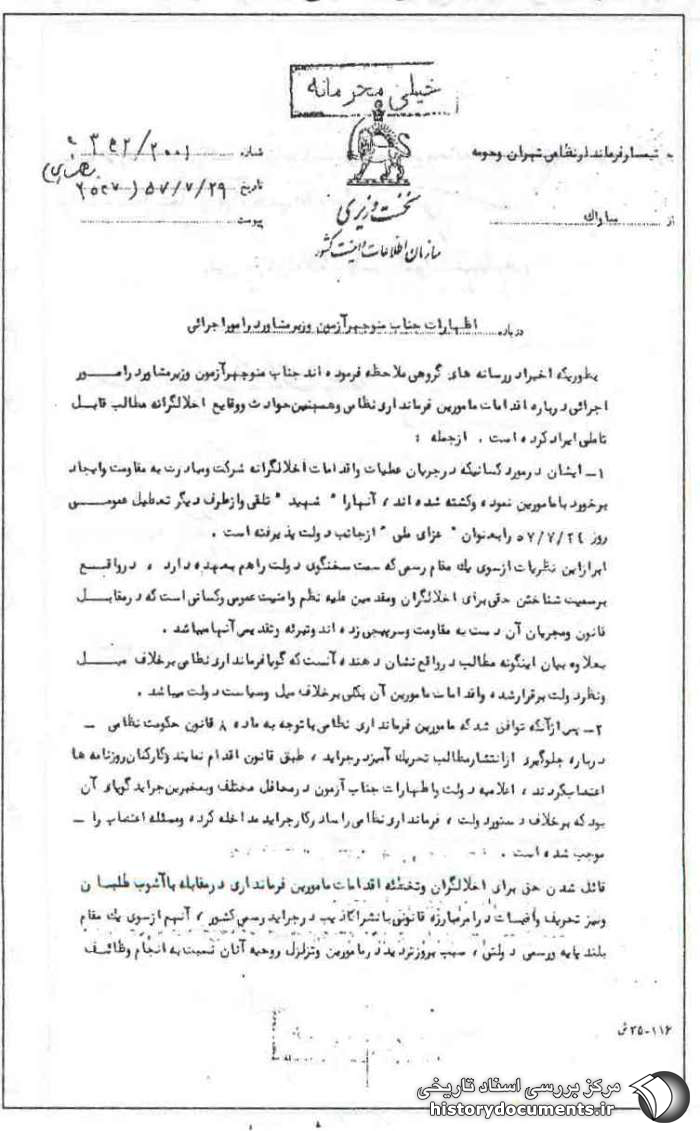 خیلی محرمانه
به تیمسار فرماندار نظامی شهران وحومه
از ساواك
شماره ۳۴۲/۲۰۰۱
تاریخ ۵۷/۷/۲۹
پیوست
نخست وزیری
سازمان اطلاعات و امنیت کشور
درباره اظهارات جناب منوچهر آزمون وزیر مشاور در امور اجرائی
بطوریکه اخیرا در رسانه های گروهی ملاحظه فرموده اند جناب منوچهر آزمون وزیر مشاور در امور
اجرائی درباره اقدامات مامورین فرمانداری نظامی وهمچنین حوادث ووقایع اخلالگرانه مطالب قابل
تاملی ایراد کرده است . ازجمله :
۱- ایشان در مورد کسانیکه در جریان عملیات واقدامات اخلالگرانه شرکت ومبادرت به مقاومت وایجاد
برخورد با مامورین نموده وکشته شده اند ، آنها را " شهید " تلقی وازطرف دیگر تعطیل عمومی
روز ۵۷/۷/۲۴ را بعنوان " عزای ملی " ازجانب دولت پذیرفته است .
ابراز این نظریات ازسوی یك مقام رسمی که سمت سخنگوی دولت را هم بعهده دارد ، در واقع
برسمیت شناختن حقی برای اخلالگران ومقدمین علیه نظم وامنیت عمومی وکسانی است که در مقابل
قانون ومجریان آن دست به مقاومت وسرپیچی زده اند وتبرئه وتقدیس آنها میباشد .
بعلاوه بیان اینگونه مطالب در واقع نشان دهنده آنست که گویا فرمانداری نظامی برخلاف میل
ونظر دولت برقرار شده واقدامات مامورین آن بکلی برخلاف میل وسیاست دولت میباشد .
۲- پس ازآنکه توافق شد که مامورین فرمانداری نظامی با توجه به ماده ۸ قانون حکومت نظامی -
درباره جلوگیری ازانتشار مطالب تحریك آمیز در جراید ، طبق قانون اقدام نمایند وکارکنان روزنامه ها
اعتصاب کردند ، اعلامیه دولت واظهارات جناب آزمون در محافل مختلف وبمخبرین جراید گویای آن
بود که برخلاف دستور دولت ، فرمانداری نظامی راسا در کار جراید مداخله کرده ومسئله اعتصاب را -
موجب شده است .
قائل شدن حق برای اخلالگران وتخطئه اقدامات مامورین فرمانداری در مقابله با آشوب طلبان
ونیز تحریف واقعیات در امر مبارزه قانونی با نشر اکاذیب در جراید رسمی کشور ، آنهم ازسوی یك مقام
بلند پایه ورسمی دولتی ، سبب بروز تردید در مامورین وتزلزل روحیه آنان نسبت به انجام وظائف
۱۱۶-۲۵ ش
مرکز بررسی اسناد تاریخی
historydocuments.ir